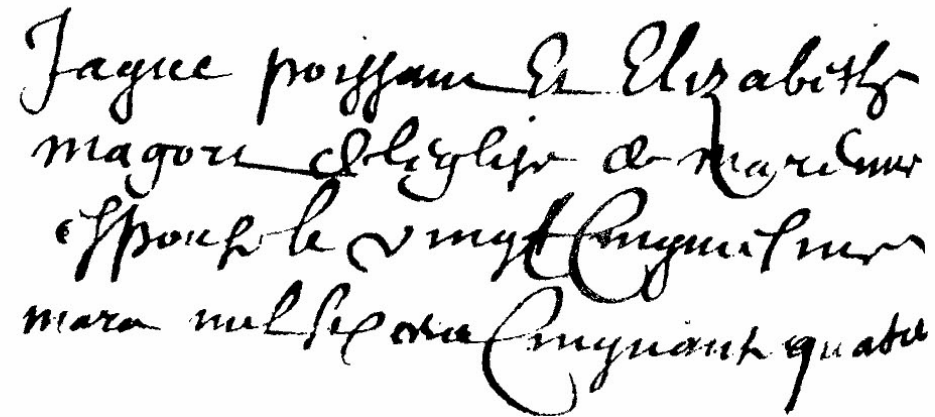 Jaque poissant Et Elizabeth
magon de leglise de marenne
espouse le vingt Cinquiesme
mars mil six cens Cinquante quatre